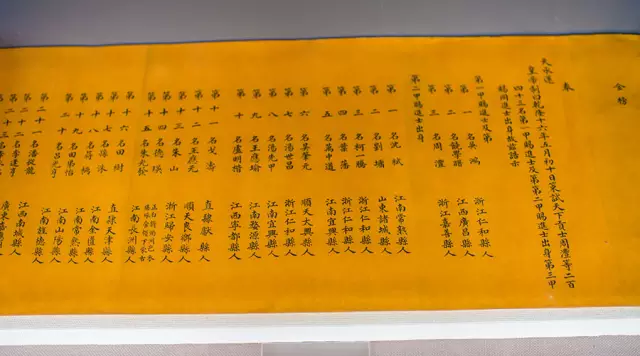 金榜
奉
天承運
皇帝制曰乾隆十六年五月初十日策試天下貢士周澧等二百
四十三名第一甲賜進士及第第二甲賜進士出身第三甲
賜同進士出身故茲誥示
第一甲賜進士及第
第一名吳鴻 浙江仁和縣人
第二名饒學曙 江西廣昌縣人
第三名周澧 浙江嘉善縣人
第二甲賜進士出身
第一名沈栻 江南常熟縣人
第二名劉墉 山東諸城縣人
第三名柯一騰 浙江仁和縣人
第四名葉藩 浙江仁和縣人
第五名萬中道 江南宜興縣人
第六名吳肇元 順天大興縣人
第七名湯世昌 浙江仁和縣人
第八名湯先甲 江南宜興縣人
第九名王應瑜 江南婺源縣人
第十名盧明楷 江西寧都縣人
第十一名戈濤 直隸獻縣人
第十二名王應元 順天良鄉縣人
第十三名朱山 浙江歸安縣人
第十四名德瑛
第十五名朱光 江南長洲縣人
第十六名田樹 直隸天津縣人
第十七名孫洙 江南金匱縣人
第十八名蔣 江南常熟縣人
第十九名 江南山陽縣人
第二十名呂元亮 江南旌德縣人
第二十一名潘從龍 江西南城縣人